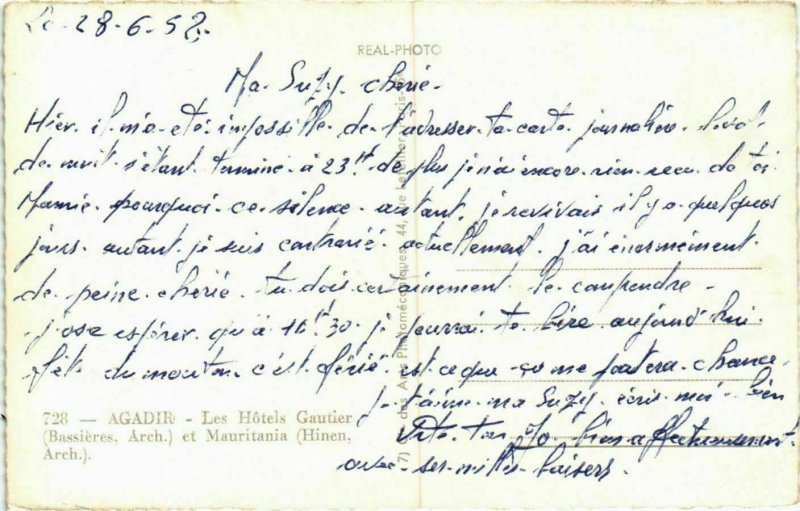 Le 28-6-58.
REAL-PHOTO
Ma Suzy chérie-
Hier il m'a été impossible de t'adresser ta carte journalière. le vol
de nuit s'étant terminé à 23H de plus je n'ai encore rien reçu de toi
Mamie pourquoi ce silence autant je revivais il y a quelques
jours autant je suis contrarié actuellement. j'ai énormément
de peine chérie tu dois certainement le comprendre-
j'ose espérer qu'à 16H30 je pourrai te lire aujourd'hui
fête du mouton c'est férié est ce que ça me portera chance-
je t'aime ma Suzy écris moi bien
vite ton Jo bien affectueusement
avec ses milles baisers.
728 — AGADIR - Les Hôtels Gautier
(Bassières, Arch.) et Mauritania (Hinen,
Arch.).
des Arts Photomécaniques, 44, rue